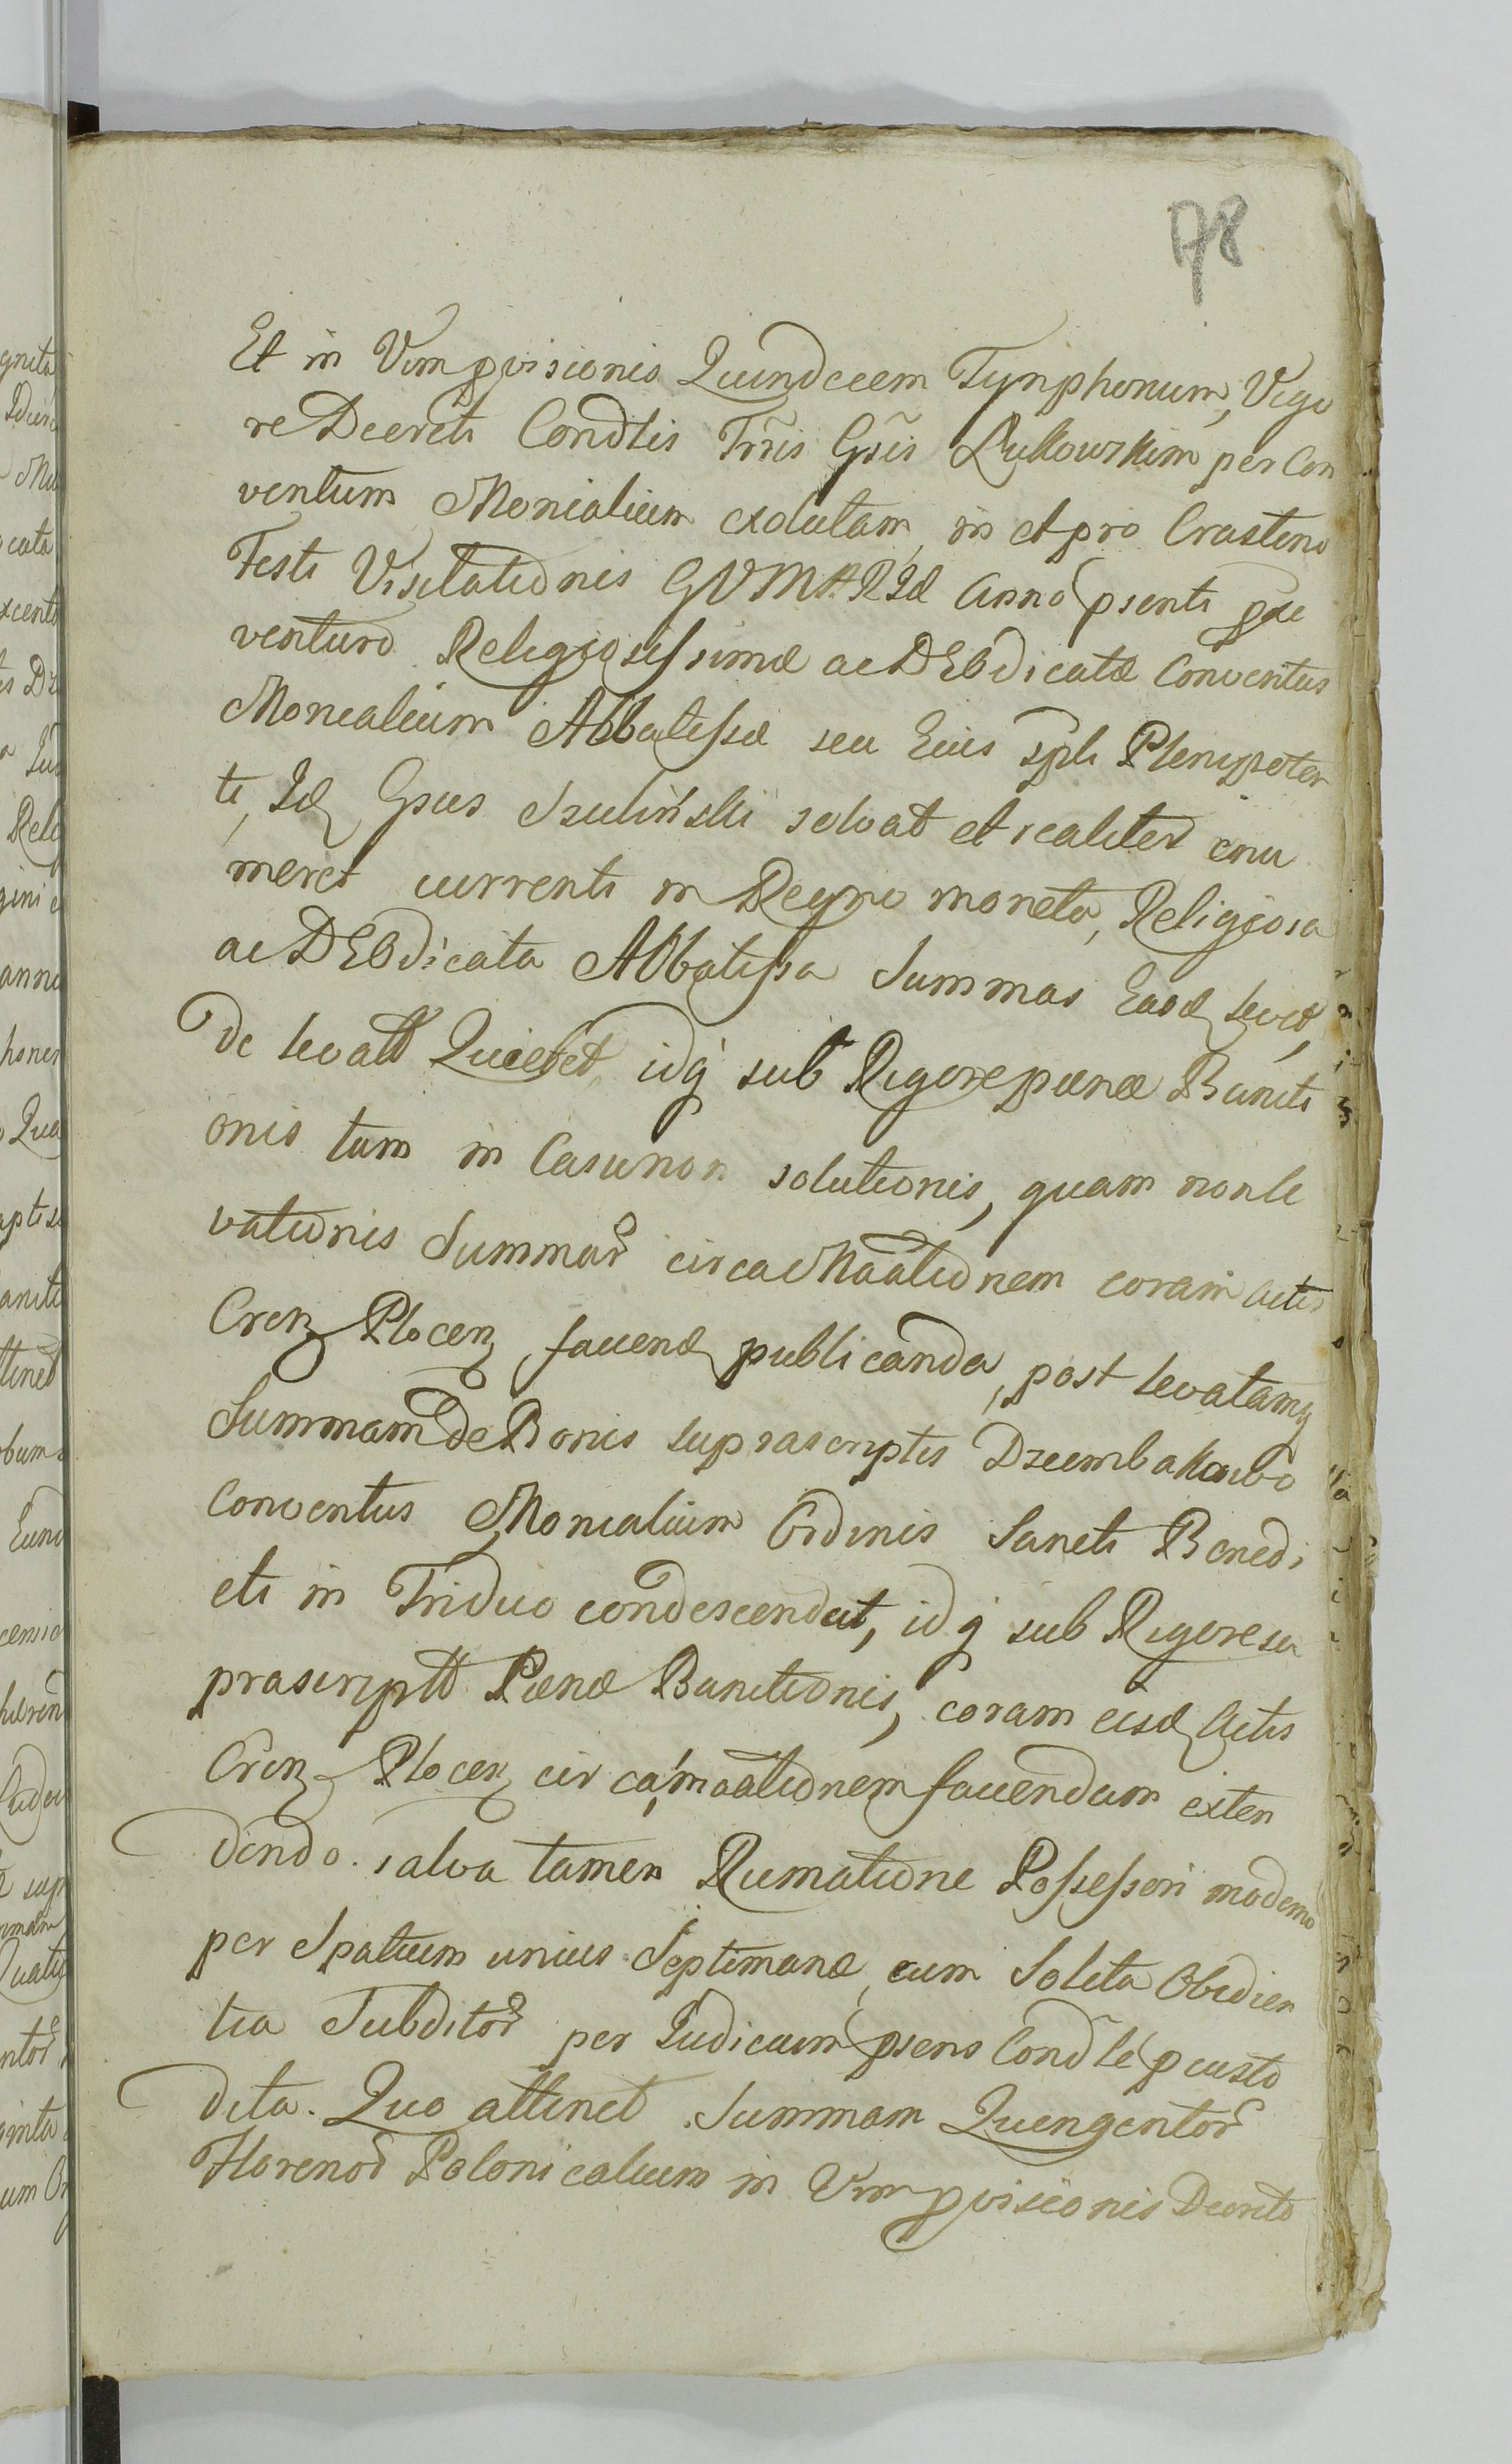 178
Et in Vim pvisionis Quindecem Tynphonum, Vigo
re Decreti Condlis Trr̃is Gsĩs Łukowskim per Con
ventum Monialium exolutam, in et pro Crastino
Festi Visitationis GVMARIæ Anno psenti pxe
venturo Religiosissimæ ac DEOdicatæ Conventus
Monialium Abbatissæ seu Eius spli Plenipoten
ti, Id Gsus Szuliński solvat et realiter enu
meret currenti in Regno moneta, Religiosa
ac DEOdicata Abbatissa Summas Easd levet,
de levatt Quietet, idq sub Rigore pœnæ Baniti
onis tum in Casu non solutionis, quam non le
vationis Summar circa Maationem coram Actis
Cren Plocen, faciend publicanda, post levatamq
Summam de Bonis suprascriptis Dziembakowo
Conventus Monialium Ordinis Sancti Benedi
cti in Triduo condescendat, idq sub Rigore su
prascriptt Pœnæ Banitionis, coram eisd Actis
Cren Plocen circa maationem faciendam exten
dendo. salva tamen Rumatione Possessori moderno
per Spatium unius Septimanæ, cum Solita Obedien
tia Subditor per Iudicium psens Condle pcusto
dita. Quo attinet Summam Quingentor
Florenor Polonicalium in Vim pvisionis Decreto